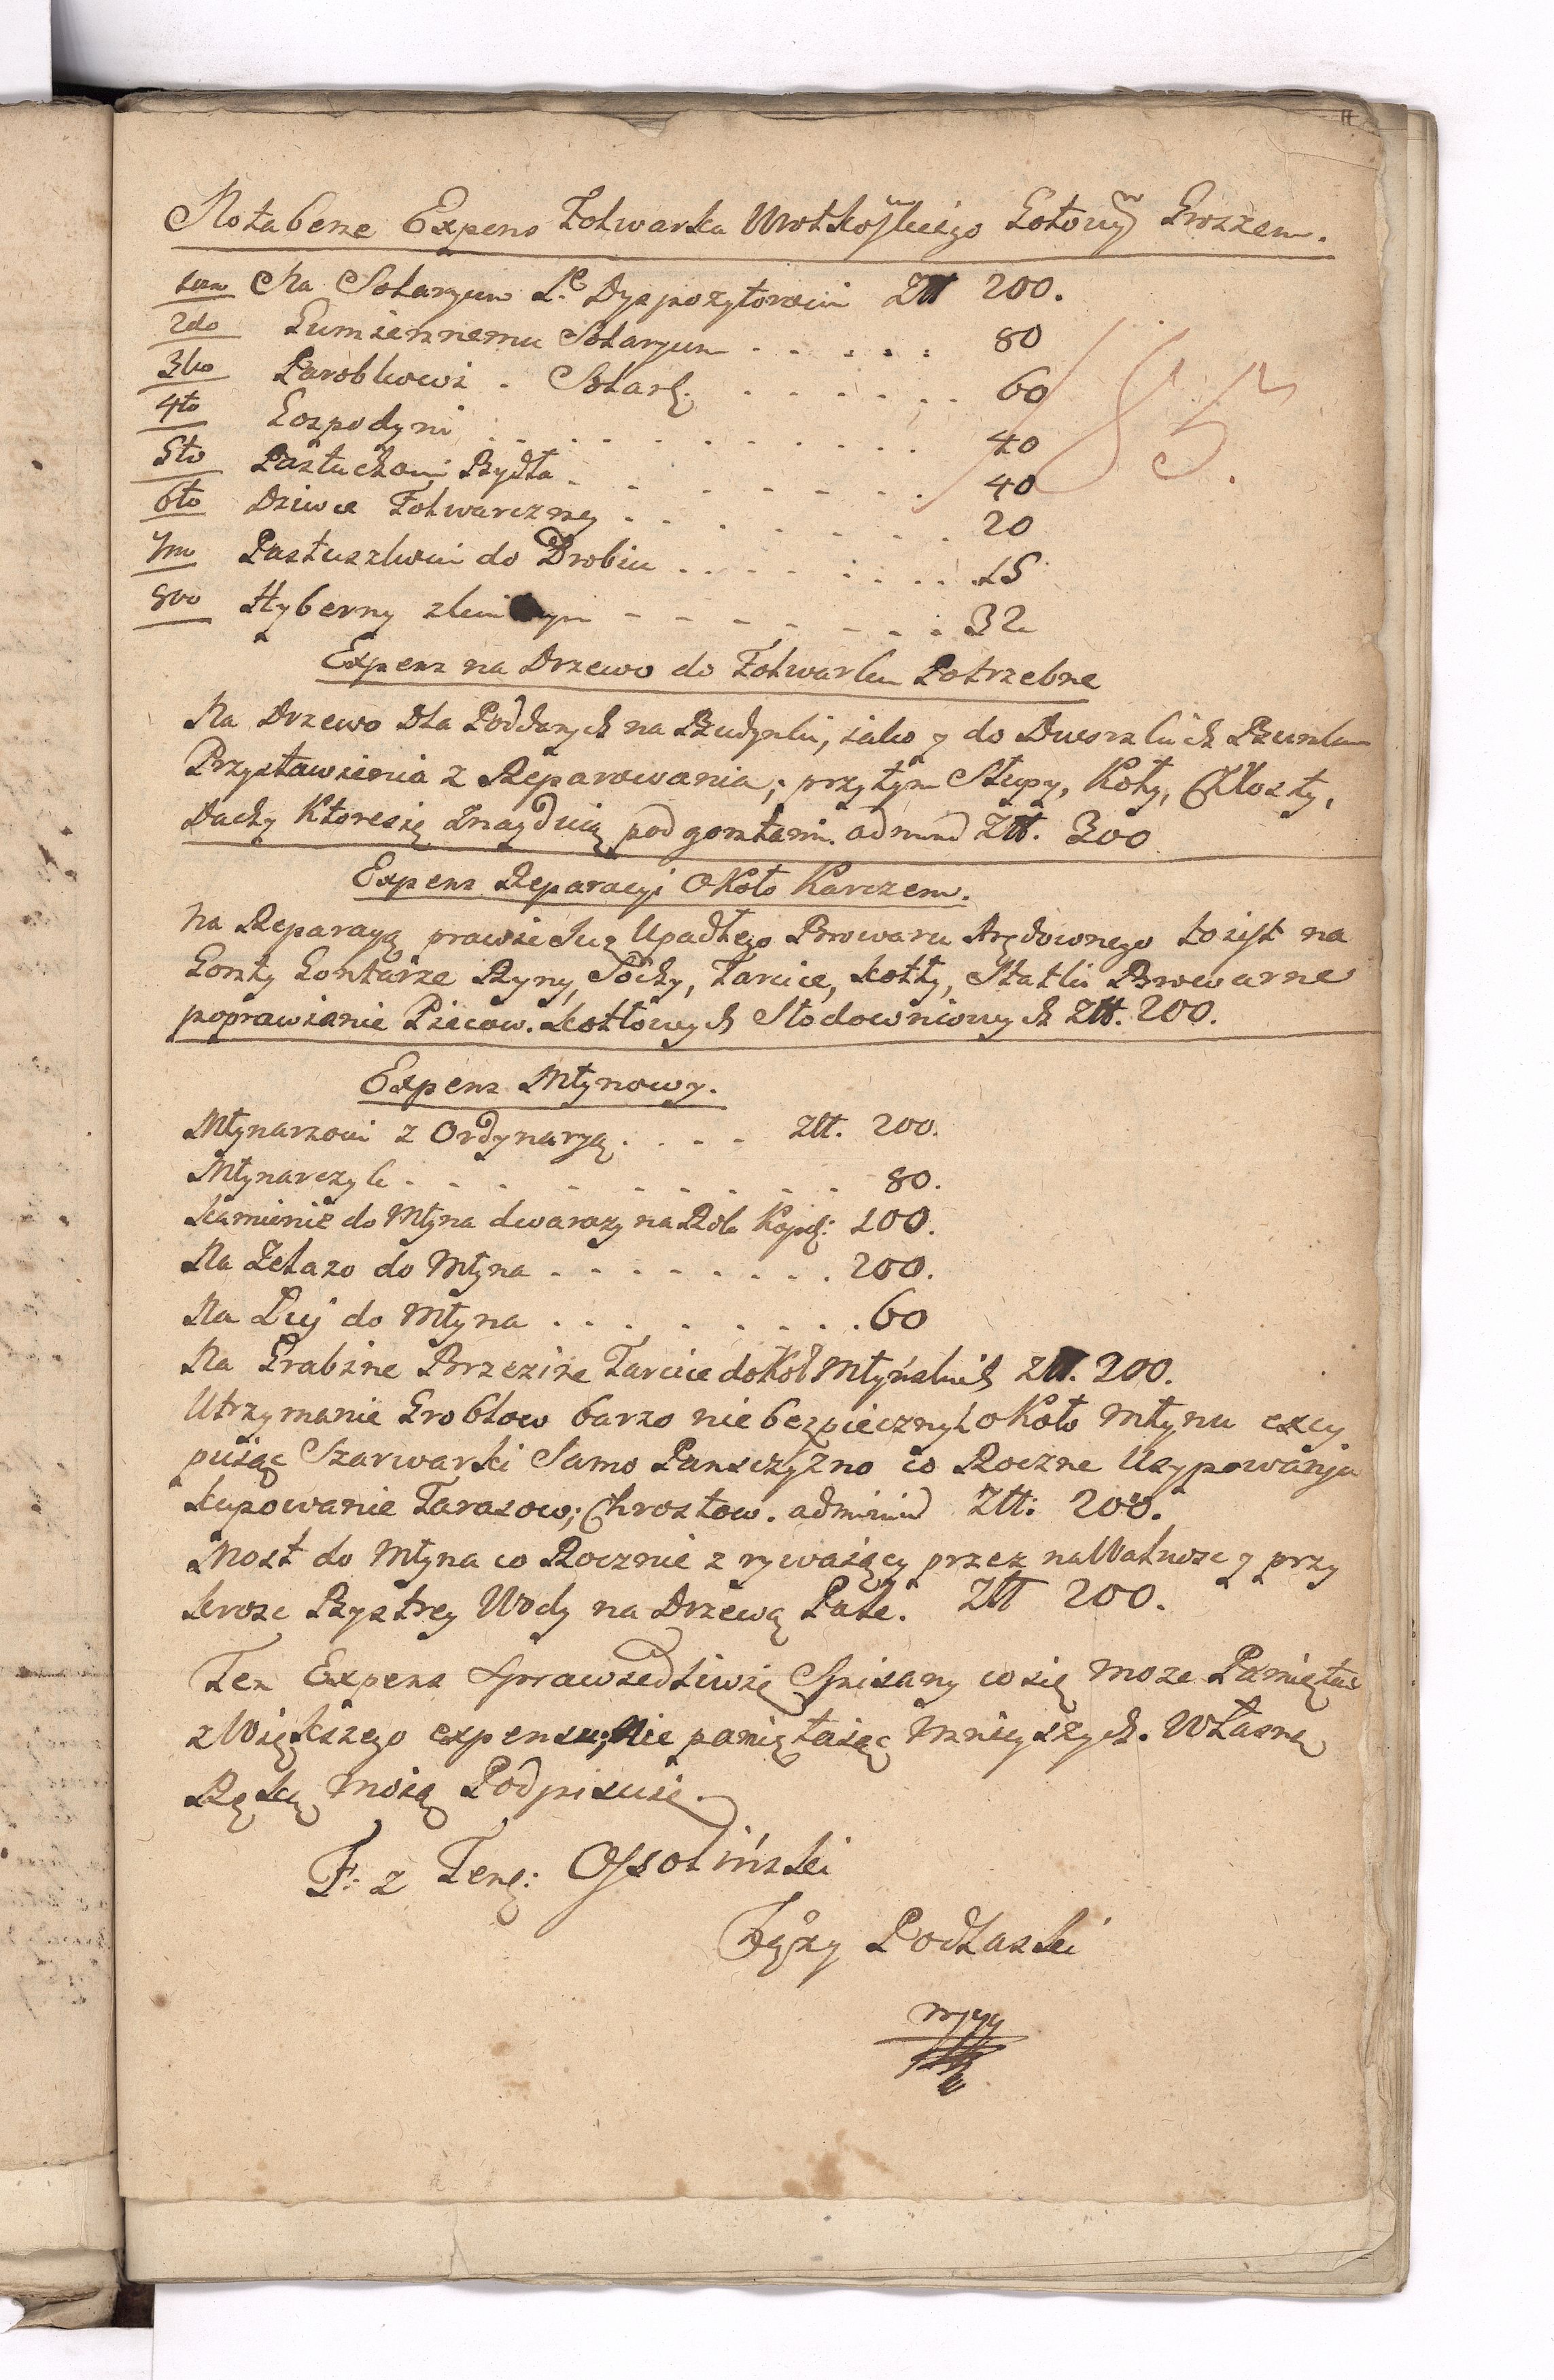 Notabene Expens Folwarku Wrotkowskiego Gotowym Groszem.
1mo Na Solaryum P. Dyspozytorowi Ztt 200.
2do Gumiennemu Solaryum . . . . . 80
3tio Parobkowi . Solar: . . . . . . 60
4to Gospodyni . . . . . . . . . 40
5to Pastuchowi Bydła . . . . . . . 40
6to Dziwce Folwarczney . . . . . . 20
7mo Pastuszkowi do Drobiu . . . . . . 15
8vo Hyberny - - - - - - 32
183.
Expens na Drzewo do Folwarku Potrzebne
Na Drzewo Dla Poddanych na Budynki, iako y do Dworskich Bunku
Przystawienia z Reparowania; przytym Słupy, Koły, Chrosty,
Dachy Ktoresię Znayduią pod gontami. ad minus Ztt. 300
Expens Reparacyi Około Karczem.
Na Reparacyą prawie Iuz Upadłego Browaru Arędownego to iest na
Gonty Gontarze Ryny, Sochy, Tarcice, kotły, Statki Browarne
poprawianie Piecow. Kotłowych Słodowniowych Ztt. 200.
Expens Młynowy.
Młynarzowi z Ordynaryą . . . - Ztt. 200.
Młynarczyk . . . . . . . . . 80.
Kamienie do Młyna dwarazy na Rok Kopę: 100.
Na Żelazo do Młyna . . . . . . . . 200.
Na Łuy do Młyna . . . . . . . . 60
Na Grabine Brzezine Tarcice do Kół Młyńskich Ztt. 200.
Utrzymanie Groblow barzo niebezpiecznych około Młynu excy
puiąc Szarwarki Samo Panszczyzno co Roczne Usypowanju
kupowanie Tarasow; Chrostow. ad minus Ztt: 200.
Most do Młyna co Rocznie zrywaiący przez nawalnosc y przy
krosc Bystrey Wody na Drzewą Pale. Ztt 200.
Ten Expens Sprawiedliwie Spisany co się moze Pamiętac
z Większego expensu; Nie pamiętaiąc mnieyszych. Własną
Ręką moią Podpisuię.
F: z Tenę: Ossoliński
Chrąży Podlaski
mpp